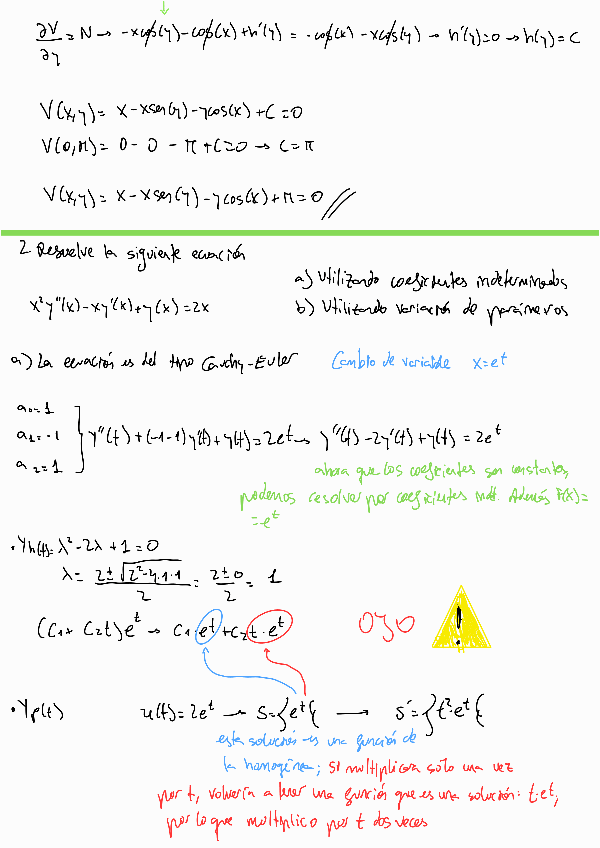 ∂V/∂y = N → -xcos(y) - cos(x) + h'(y) = -cos(x) - xcos(y) → h'(y)=0 → h(y)=C
V(x,y) = x - xsen(y) - ycos(x) + C = 0
V(0,π) = 0 - 0 - π + C = 0 → C = π
V(x,y) = x - xsen(y) - ycos(x) + π = 0 //
2. Resuelve la siguiente ecuación
a) Utilizando coeficientes indeterminados
x²y''(x) - xy'(x) + y(x) = 2x
b) Utilizando variación de parámetros
a) La ecuación es del tipo Cauchy-Euler Cambio de variable x=e^t
a₀=1
a₁=-1
a₂=1
y''(t) + (-1-1)y'(t) + y(t) = 2e^t → y''(t) - 2y'(t) + y(t) = 2e^t
ahora que los coeficientes son constantes,
podemos resolver por coeficientes indt. Además F(x)=
= e^t
• Yh(t) = λ² - 2λ + 1 = 0
λ = (2 ± √(2²-4·1·1))/2 = (2±0)/2 = 1
(C₁ + C₂t)e^t → C₁·e^t + C₂t·e^t
OJO !
• Yp(t) u(t) = 2e^t → S = {e^t{ → S' = {t²·e^t{
esta solución es una función de
la homogénea; si multiplicara solo una vez
por t, volvería a tener una función que es una solución: t·e^t,
por lo que multiplico por t dos veces